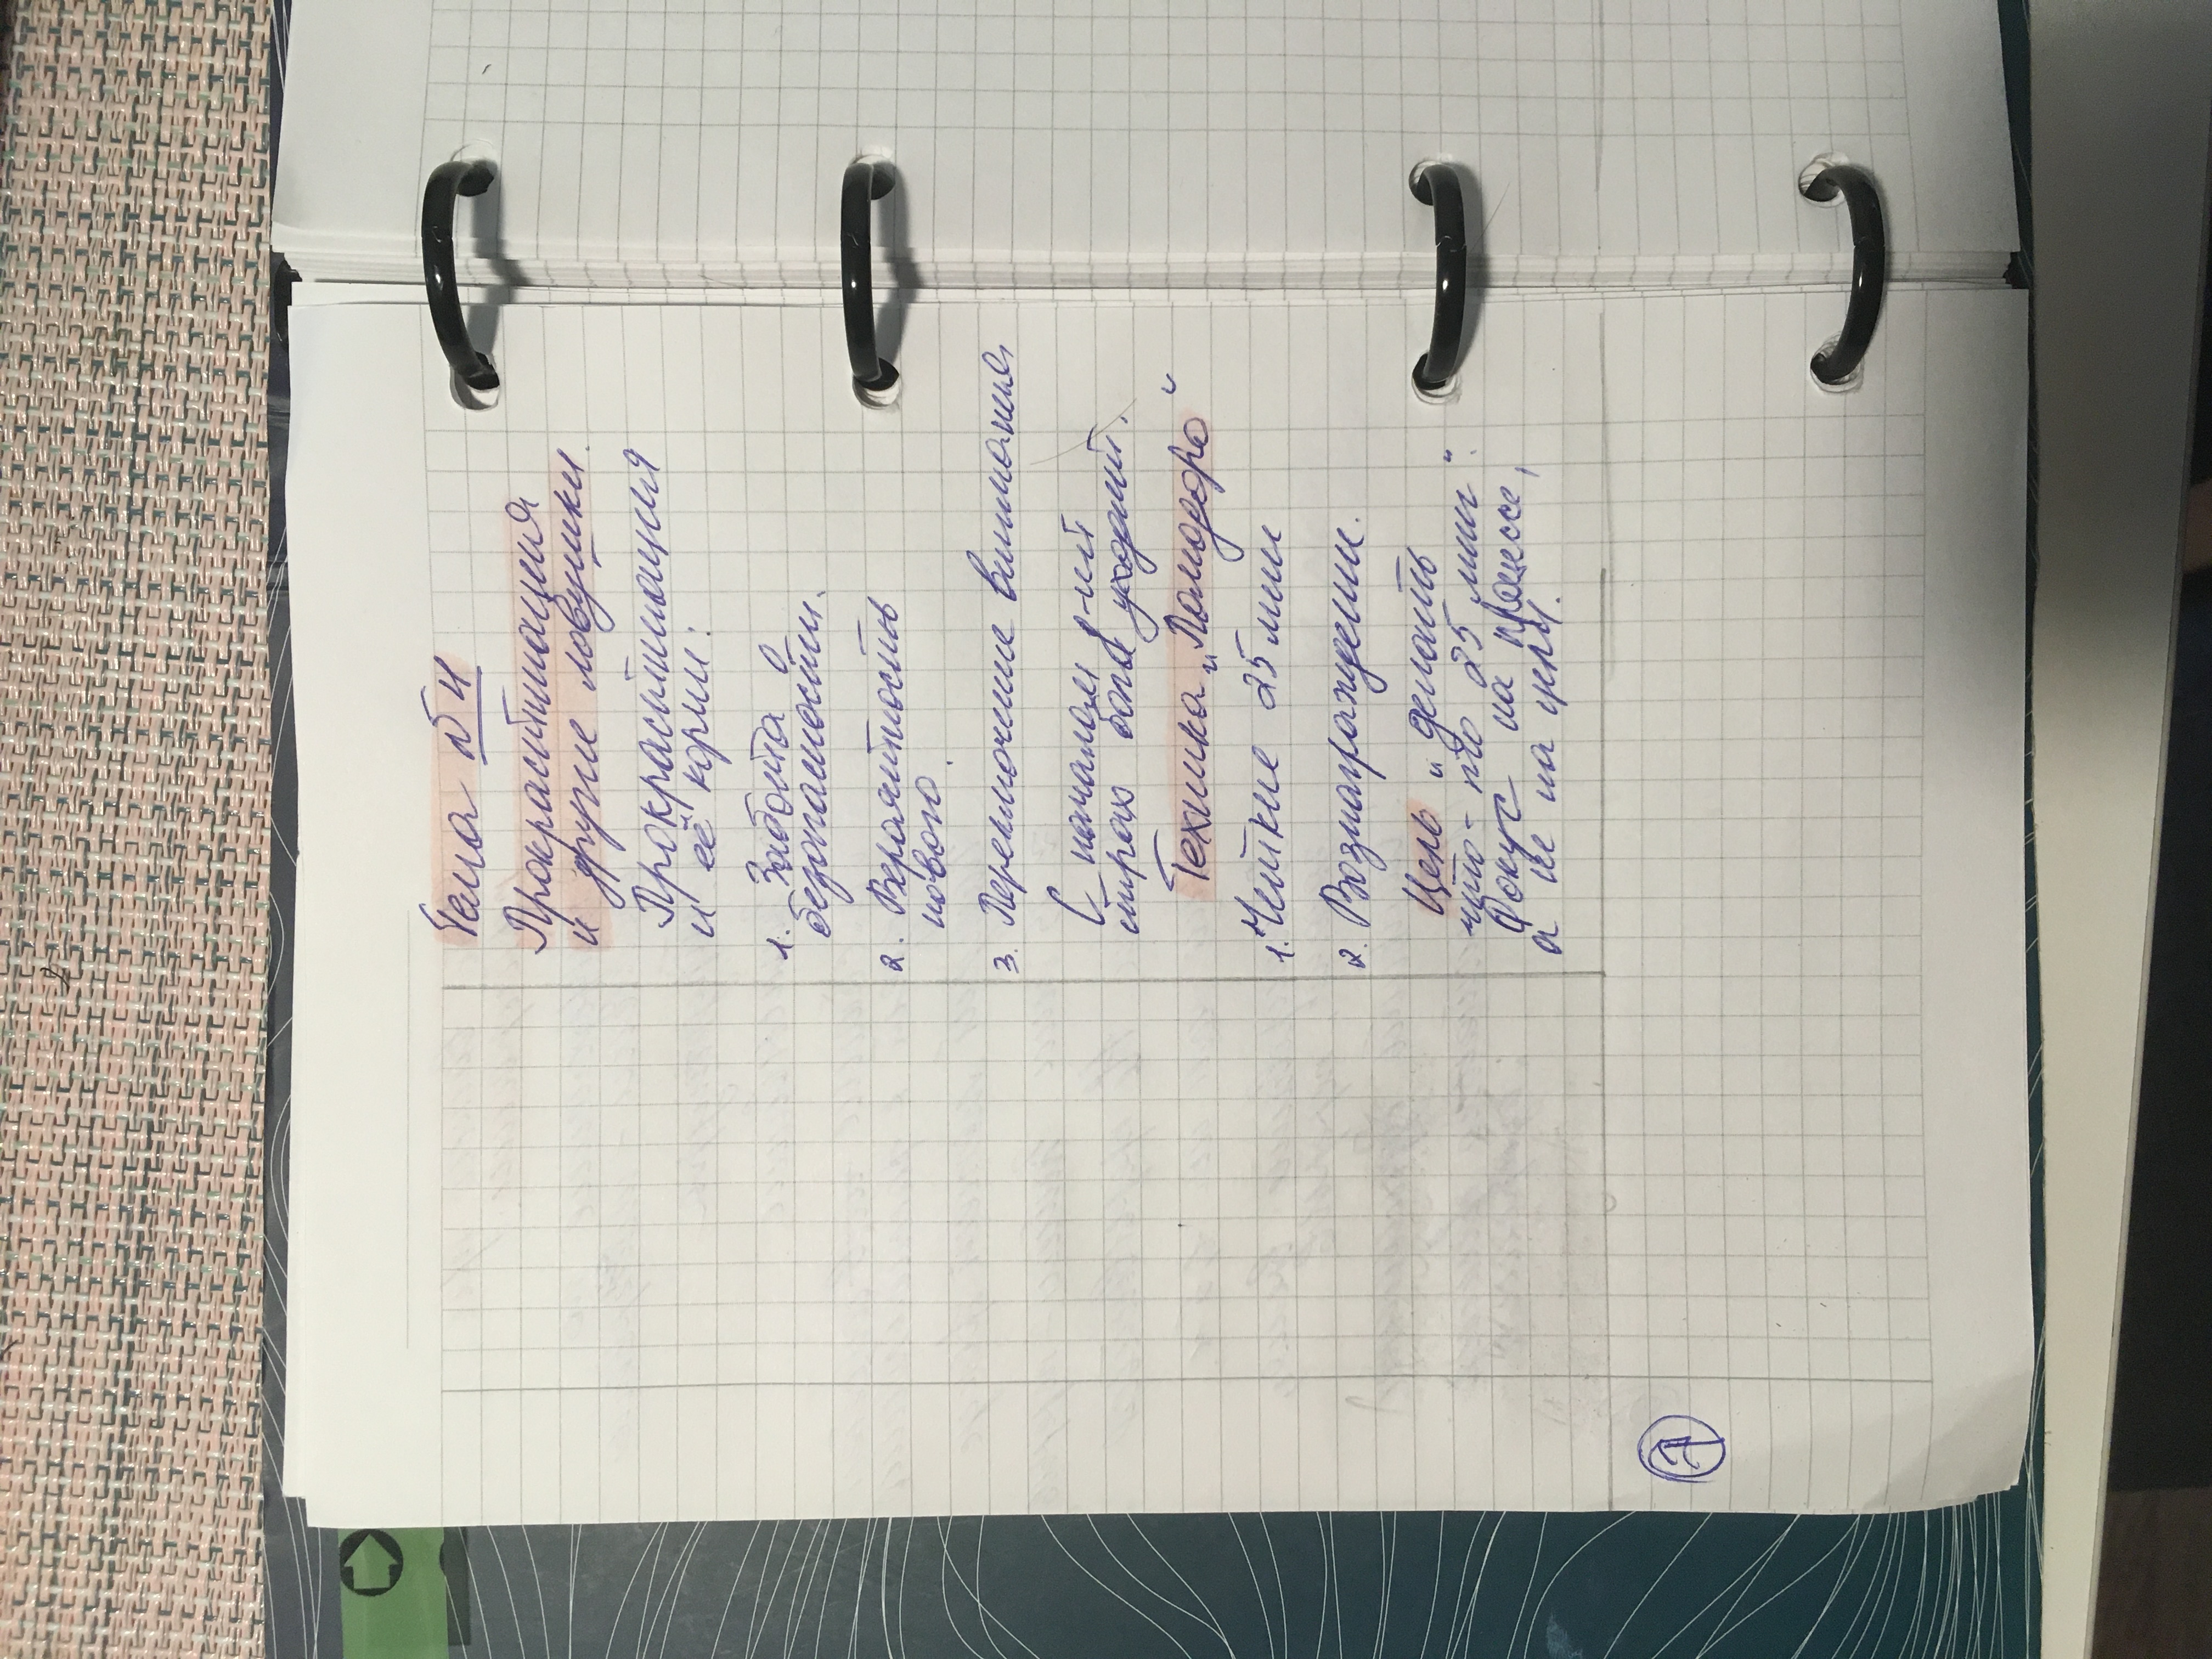 Тема №4
Прокрастинация
и другие ловушки.
Прокрастинация
и её корни:
1. Забота о
безопасности.
2. Вероятность
нового.
3. Переключение внимания
С началом д-ий
страх боли уходит.
Техника „Помодоро“
1. Чёткие 25 мин
2. Вознаграждение.
Цель „делать
что-то 25 мин“.
Фокус на процессе,
а не на цели.
7